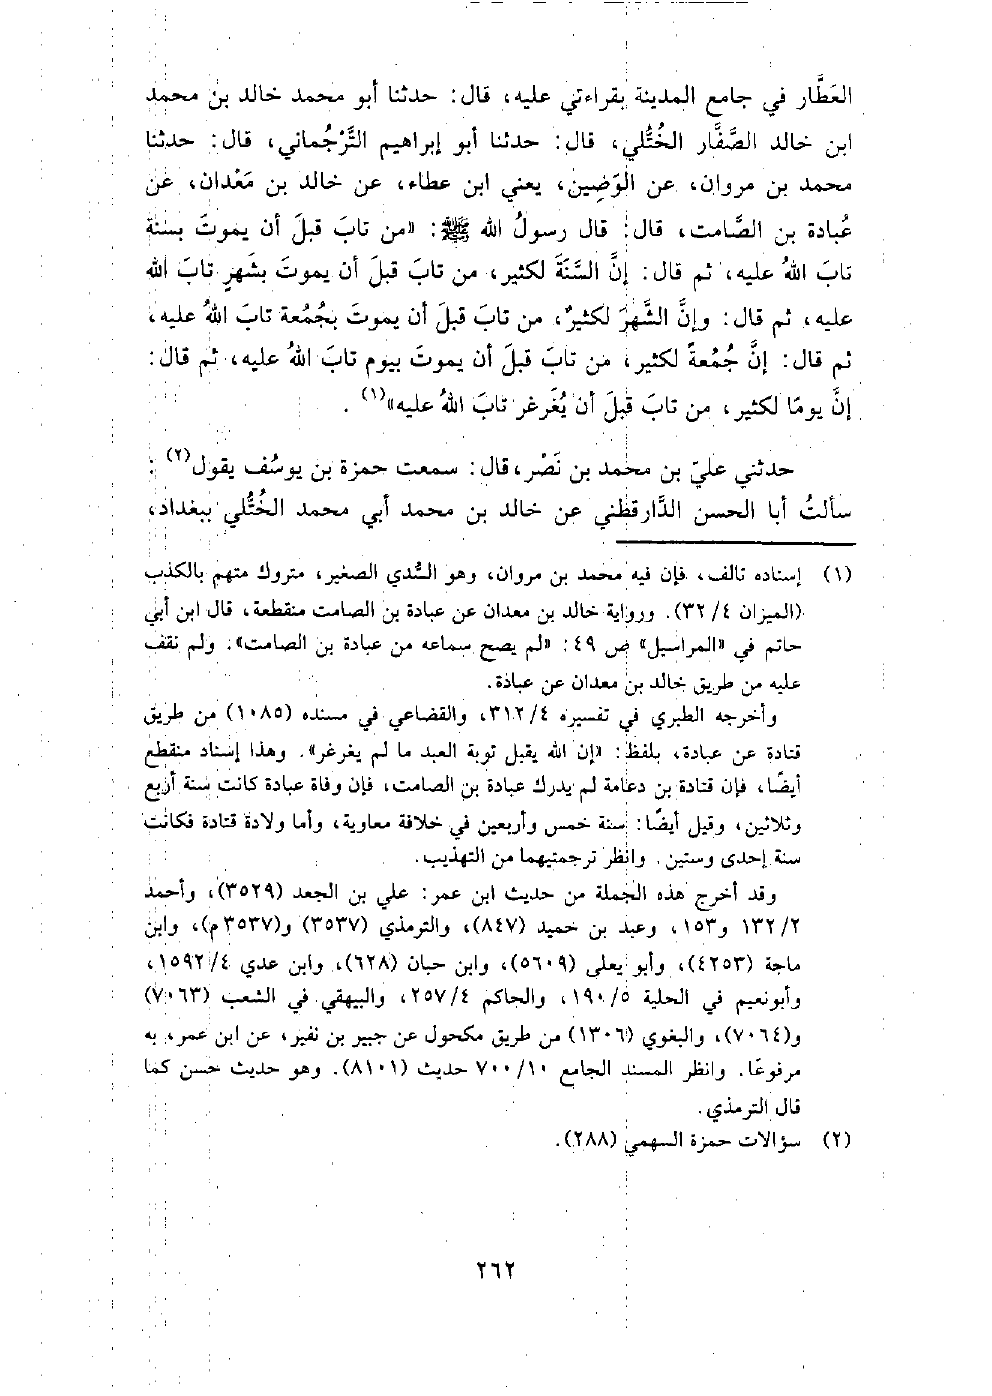 العَطَّار في جامع المدينة بقراءتي عليه، قال: حدثنا أبو محمد خالد بن محمد
ابن خالد الصَّفَّار الخُتُّلي، قال: حدثنا أبو إبراهيم التَّرْجُماني، قال: حدثنا
محمد بن مروان، عن الوَضِين، يعني ابن عطاء، عن خالد بن مَعْدان، عن
عُبادة بن الصَّامت، قال: قال رسولُ الله ﷺ: «من تابَ قبلَ أن يموتَ بسنة
تابَ اللهُ عليه، ثم قال: إنَّ السَّنَةَ لكثير، من تابَ قبلَ أن يموتَ بشَهرٍ تابَ الله
عليه، ثم قال: وإنَّ الشَّهرَ لكثيرٌ، من تابَ قبلَ أن يموتَ بجُمُعة تابَ اللهُ عليه،
ثم قال: إنَّ جُمُعةً لكثير، من تابَ قبلَ أن يموتَ بيوم تابَ اللهُ عليه، ثم قال:
إنَّ يومًا لكثير، من تابَ قبلَ أن يُغَرغر تابَ اللهُ عليه»(١) .
حدثني عليّ بن محمد بن نَصْر، قال: سمعت حمزة بن يوسُف يقول(٢) :
سألتُ أبا الحسن الدَّارقطني عن خالد بن محمد أبي محمد الخُتُّلي ببغداد،
(١) إسناده تالف، فإن فيه محمد بن مروان، وهو السُّدي الصغير، متروك متهم بالكذب
(الميزان ٤/ ٣٢). ورواية خالد بن معدان عن عبادة بن الصامت منقطعة، قال ابن أبي
حاتم في «المراسيل» ص ٤٩: «لم يصح سماعه من عبادة بن الصامت». ولم نقف
عليه من طريق خالد بن معدان عن عبادة.
وأخرجه الطبري في تفسيره ٤/ ٣١٢، والقضاعي في مسنده (١٠٨٥) من طريق
قتادة عن عبادة، بلفظ: «إن الله يقبل توبة العبد ما لم يغرغر». وهذا إسناد منقطع
أيضًا، فإن قتادة بن دعامة لم يدرك عبادة بن الصامت، فإن وفاة عبادة كانت سنة أربع
وثلاثين، وقيل أيضًا: سنة خمس وأربعين في خلافة معاوية، وأما ولادة قتادة فكانت
سنة إحدى وستين. وانظر ترجمتيهما من التهذيب.
وقد أخرج هذه الجملة من حديث ابن عمر: علي بن الجعد (٣٥٢٩)، وأحمد
٢/ ١٣٢ و١٥٣، وعبد بن حميد (٨٤٧)، والترمذي (٣٥٣٧) و(٣٥٣٧م)، وابن
ماجة (٤٢٥٣)، وأبو يعلى (٥٦٠٩)، وابن حبان (٦٢٨)، وابن عدي ٤/ ١٥٩٢،
وأبونعيم في الحلية ٥/ ١٩٠، والحاكم ٤/ ٢٥٧، والبيهقي في الشعب (٧٠٦٣)
و(٧٠٦٤)، والبغوي (١٣٠٦) من طريق مكحول عن جبير بن نفير، عن ابن عمر، به
مرفوعًا. وانظر المسند الجامع ١٠/ ٧٠٠ حديث (٨١٠١). وهو حديث حسن كما
قال الترمذي.
(٢) سؤالات حمزة السهمي (٢٨٨).
٢٦٢